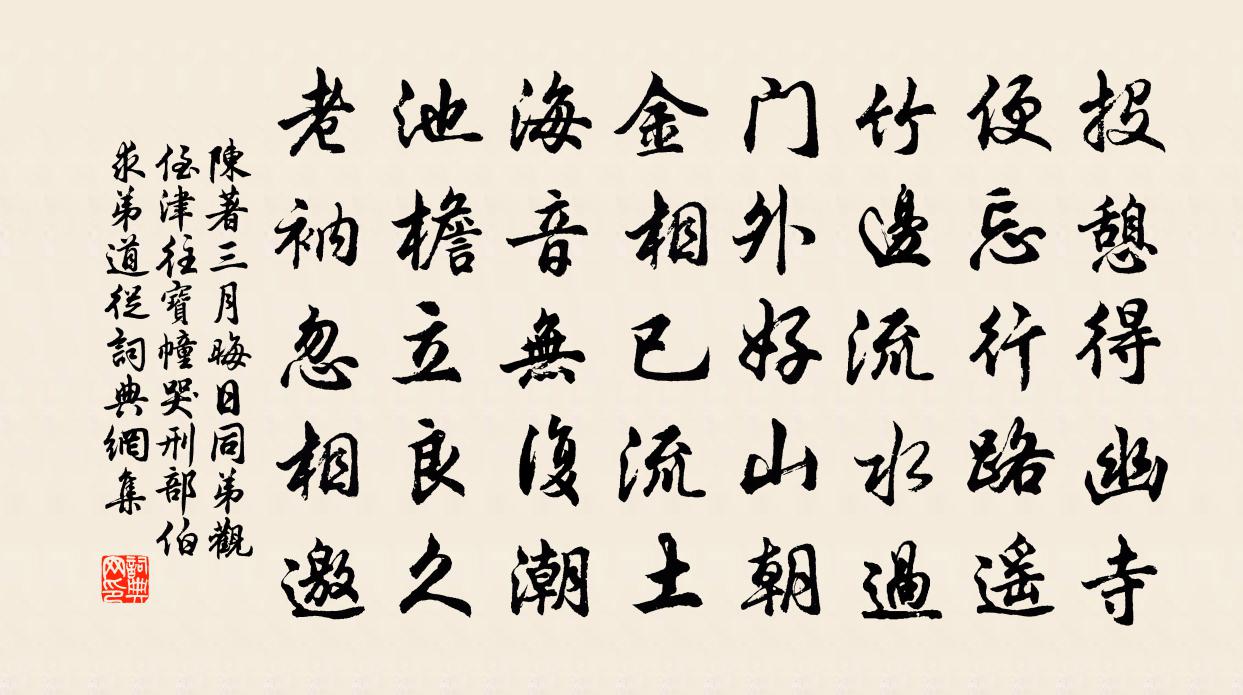 投憩得幽寺
便忘行路遥
竹邊流水過
门外好山朝
金相已流土
海音無復潮
池檐立良久
老衲忽相邀
陳著三月晦日同弟觀
侄津往寶幢哭刑部伯
求弟道從詞典網集
詞典网印